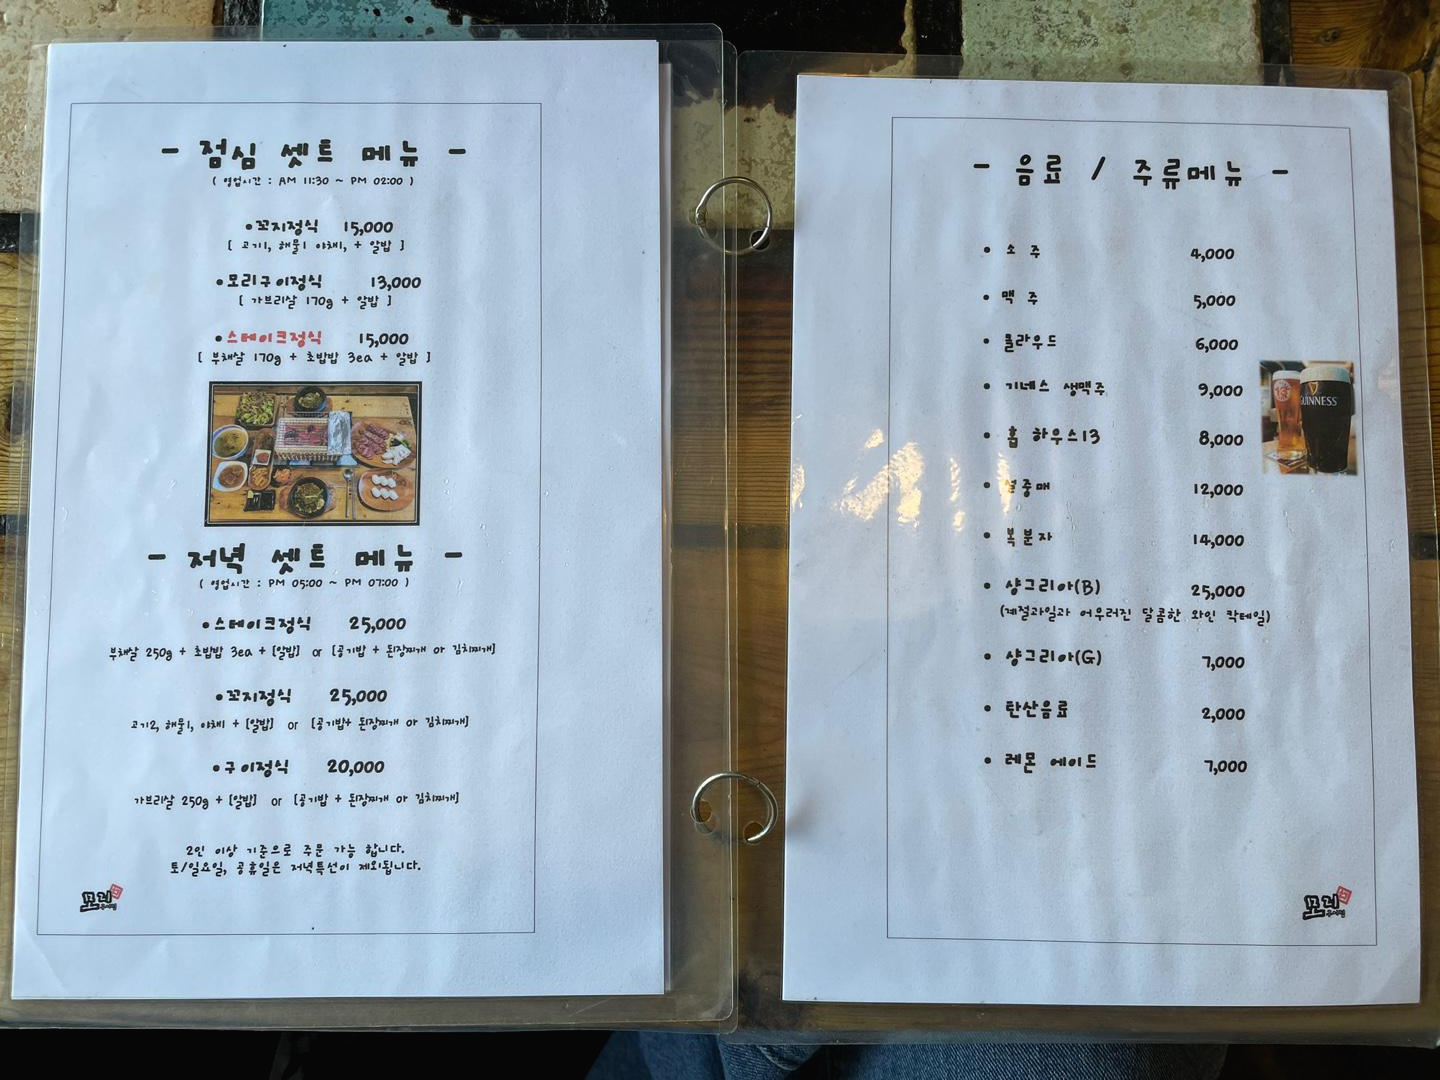 - 점심 셋트 메뉴 -
( 영업시간 : AM 11:30 ~ PM 02:00 )
•꼬지정식 15,000
[ 고기1, 해물1 야채1, + 알밥 ]
•모리구이정식 13,000
[ 가브리살 170g + 알밥 ]
•스테이크정식 15,000
[ 부채살 170g + 초밥밥 3ea + 알밥 ]
- 저녁 셋트 메뉴 -
( 영업시간 : PM 05:00 ~ PM 07:00 )
•스테이크정식 25,000
부채살 250g + 초밥밥 3ea + [알밥] or [공기밥 + 된장찌개 or 김치찌개]
•꼬지정식 25,000
고기2, 해물1, 야채1 + [알밥] or [공기밥+ 된장찌개 or 김치찌개]
•구이정식 20,000
가브리살 250g + [알밥] or [공기밥 + 된장찌개 or 김치찌개]
2인 이상 기준으로 주문 가능 합니다.
토/일요일, 공휴일은 저녁특선이 제외됩니다.
- 음료 / 주류메뉴 -
• 소 주 4,000
• 맥 주 5,000
• 클라우드 6,000
• 기네스 생맥주 9,000
• 홉 하우스13 8,000
GUINNESS
• 설중매 12,000
• 복분자 14,000
• 샹그리아(B) 25,000
(계절과일과 어우러진 달콤한 와인 칵테일)
• 샹그리아(G) 7,000
• 탄산음료 2,000
• 레몬 에이드 7,000